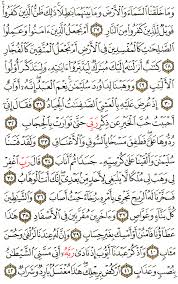 وَمَا خَلَقْنَا ٱلسَّمَآءَ وَٱلْأَرْضَ وَمَا بَيْنَهُمَا بَٰطِلًا ذَٰلِكَ ظَنُّ ٱلَّذِينَ كَفَرُوا۟
فَوَيْلٌ لِّلَّذِينَ كَفَرُوا۟ مِنَ ٱلنَّارِ ٢٧ أَمْ نَجْعَلُ ٱلَّذِينَ ءَامَنُوا۟ وَعَمِلُوا۟
ٱلصَّٰلِحَٰتِ كَٱلْمُفْسِدِينَ فِى ٱلْأَرْضِ أَمْ نَجْعَلُ ٱلْمُتَّقِينَ كَٱلْفُجَّارِ
٢٨ كِتَٰبٌ أَنزَلْنَٰهُ إِلَيْكَ مُبَٰرَكٌ لِّيَدَّبَّرُوٓا۟ ءَايَٰتِهِۦ وَلِيَتَذَكَّرَ أُو۟لُوا۟
ٱلْأَلْبَٰبِ ٢٩ وَوَهَبْنَا لِدَاوُۥدَ سُلَيْمَٰنَ نِعْمَ ٱلْعَبْدُ إِنَّهُۥٓ أَوَّابٌ
٣٠ إِذْ عُرِضَ عَلَيْهِ بِٱلْعَشِىِّ ٱلصَّٰفِنَٰتُ ٱلْجِيَادُ ٣١ فَقَالَ إِنِّىٓ
أَحْبَبْتُ حُبَّ ٱلْخَيْرِ عَن ذِكْرِ رَبِّى حَتَّىٰ تَوَارَتْ بِٱلْحِجَابِ ٣٢
رُدُّوهَا عَلَىَّ فَطَفِقَ مَسْحًۢا بِٱلسُّوقِ وَٱلْأَعْنَاقِ ٣٣ وَلَقَدْ فَتَنَّا
سُلَيْمَٰنَ وَأَلْقَيْنَا عَلَىٰ كُرْسِيِّهِۦ جَسَدًا ثُمَّ أَنَابَ ٣٤ قَالَ رَبِّ ٱغْفِرْ
لِى وَهَبْ لِى مُلْكًا لَّا يَنۢبَغِى لِأَحَدٍ مِّنۢ بَعْدِىٓ إِنَّكَ أَنتَ ٱلْوَهَّابُ ٣٥
فَسَخَّرْنَا لَهُ ٱلرِّيحَ تَجْرِى بِأَمْرِهِۦ رُخَآءً حَيْثُ أَصَابَ ٣٦ وَٱلشَّيَٰطِينَ
كُلَّ بَنَّآءٍ وَغَوَّاصٍ ٣٧ وَءَاخَرِينَ مُقَرَّنِينَ فِى ٱلْأَصْفَادِ ٣٨ هَٰذَا
عَطَآؤُنَا فَٱمْنُنْ أَوْ أَمْسِكْ بِغَيْرِ حِسَابٍ ٣٩ وَإِنَّ لَهُۥ عِندَنَا لَزُلْفَىٰ وَحُسْنَ
مَـَٔابٍ ٤٠ وَٱذْكُرْ عَبْدَنَآ أَيُّوبَ إِذْ نَادَىٰ رَبَّهُۥٓ أَنِّى مَسَّنِىَ ٱلشَّيْطَٰنُ
بِنُصْبٍ وَعَذَابٍ ٤١ ٱرْكُضْ بِرِجْلِكَ هَٰذَا مُغْتَسَلٌۢ بَارِدٌ وَشَرَابٌ ٤٢